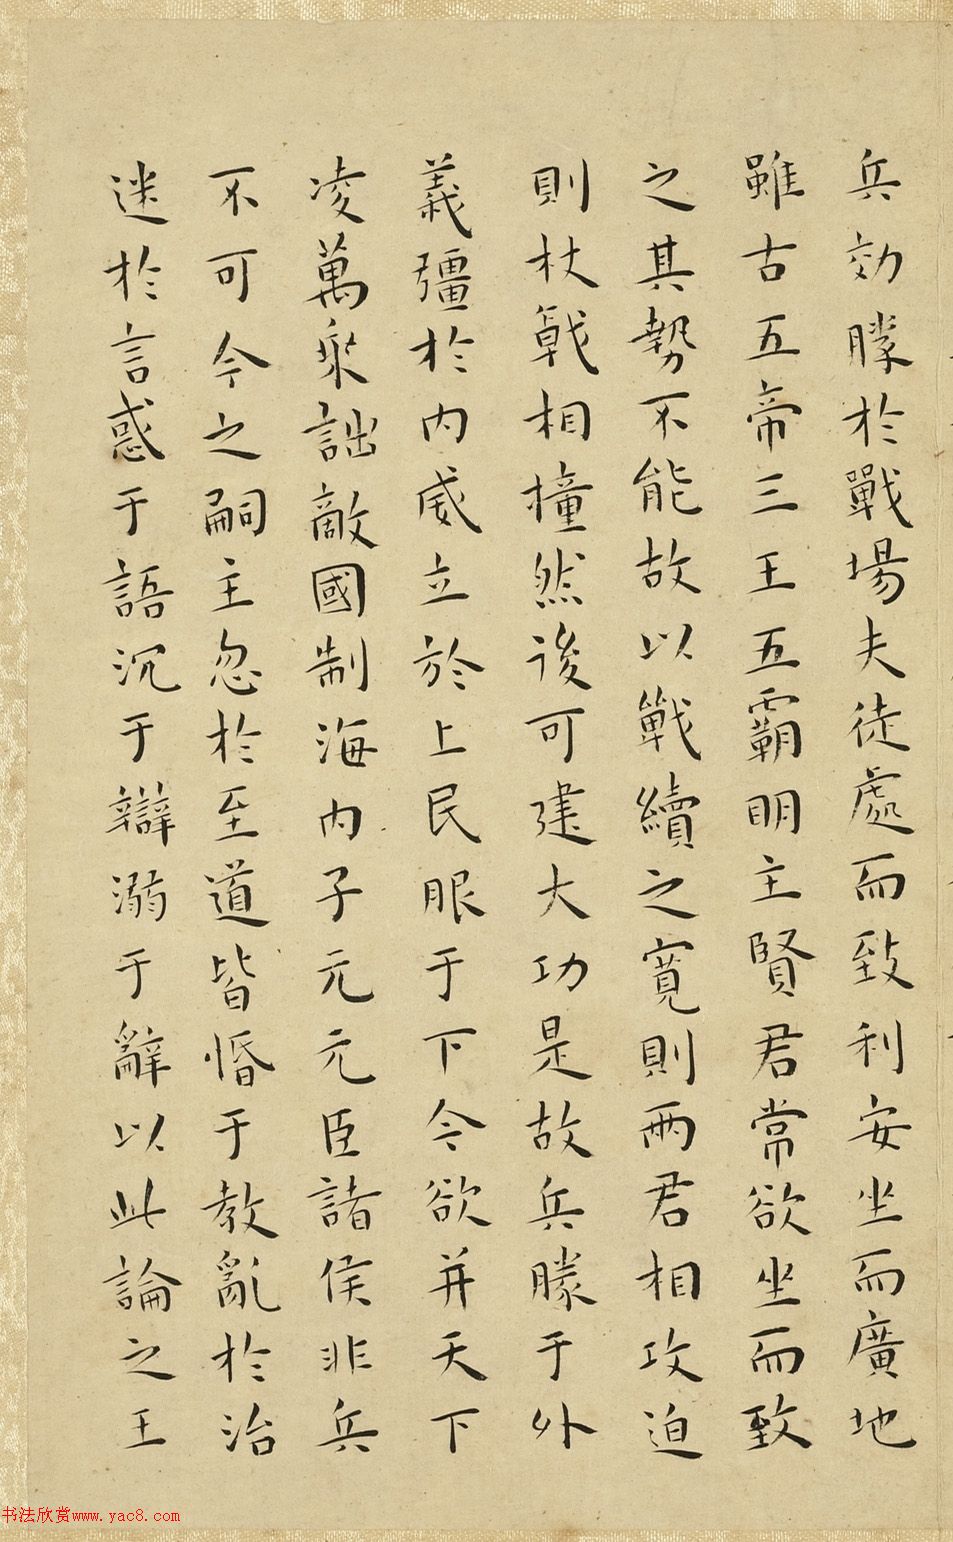 兵効勝於戰場夫徒處而致利安坐而廣地
雖古五帝三王五霸明主賢君常欲坐而致
之其勢不能故以戰續之寬則兩君相攻迫
則杖戟相撞然後可建大功是故兵勝于外
義彊於內威立於上民服于下今欲并天下
凌萬衆詘敵國制海內子元元臣諸侯非兵
不可今之嗣主忽於至道皆惛于教亂於治
迷於言惑于語沉于辯溺于辭以此論之王
书法欣赏www.yac8.com